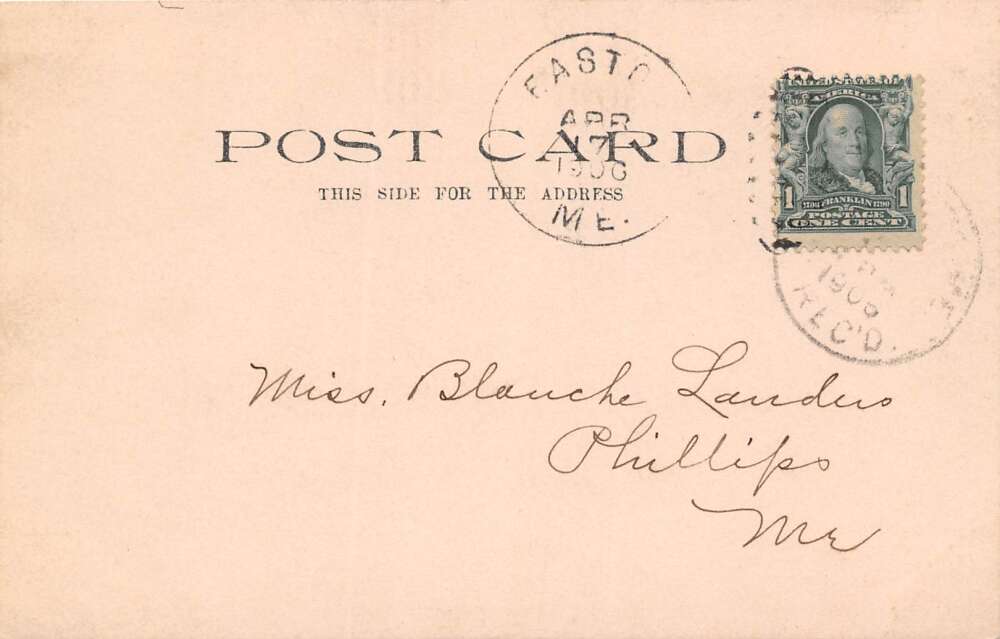 POST CARD
THIS SIDE FOR THE ADDRESS
EASTO
APR
17
1906
ME.
AMERICA
1 1706 FRANKLIN 1790 1
POSTAGE
ONE CENT
1906
REC'D.
Miss. Blanche Landers
Phillips
Me